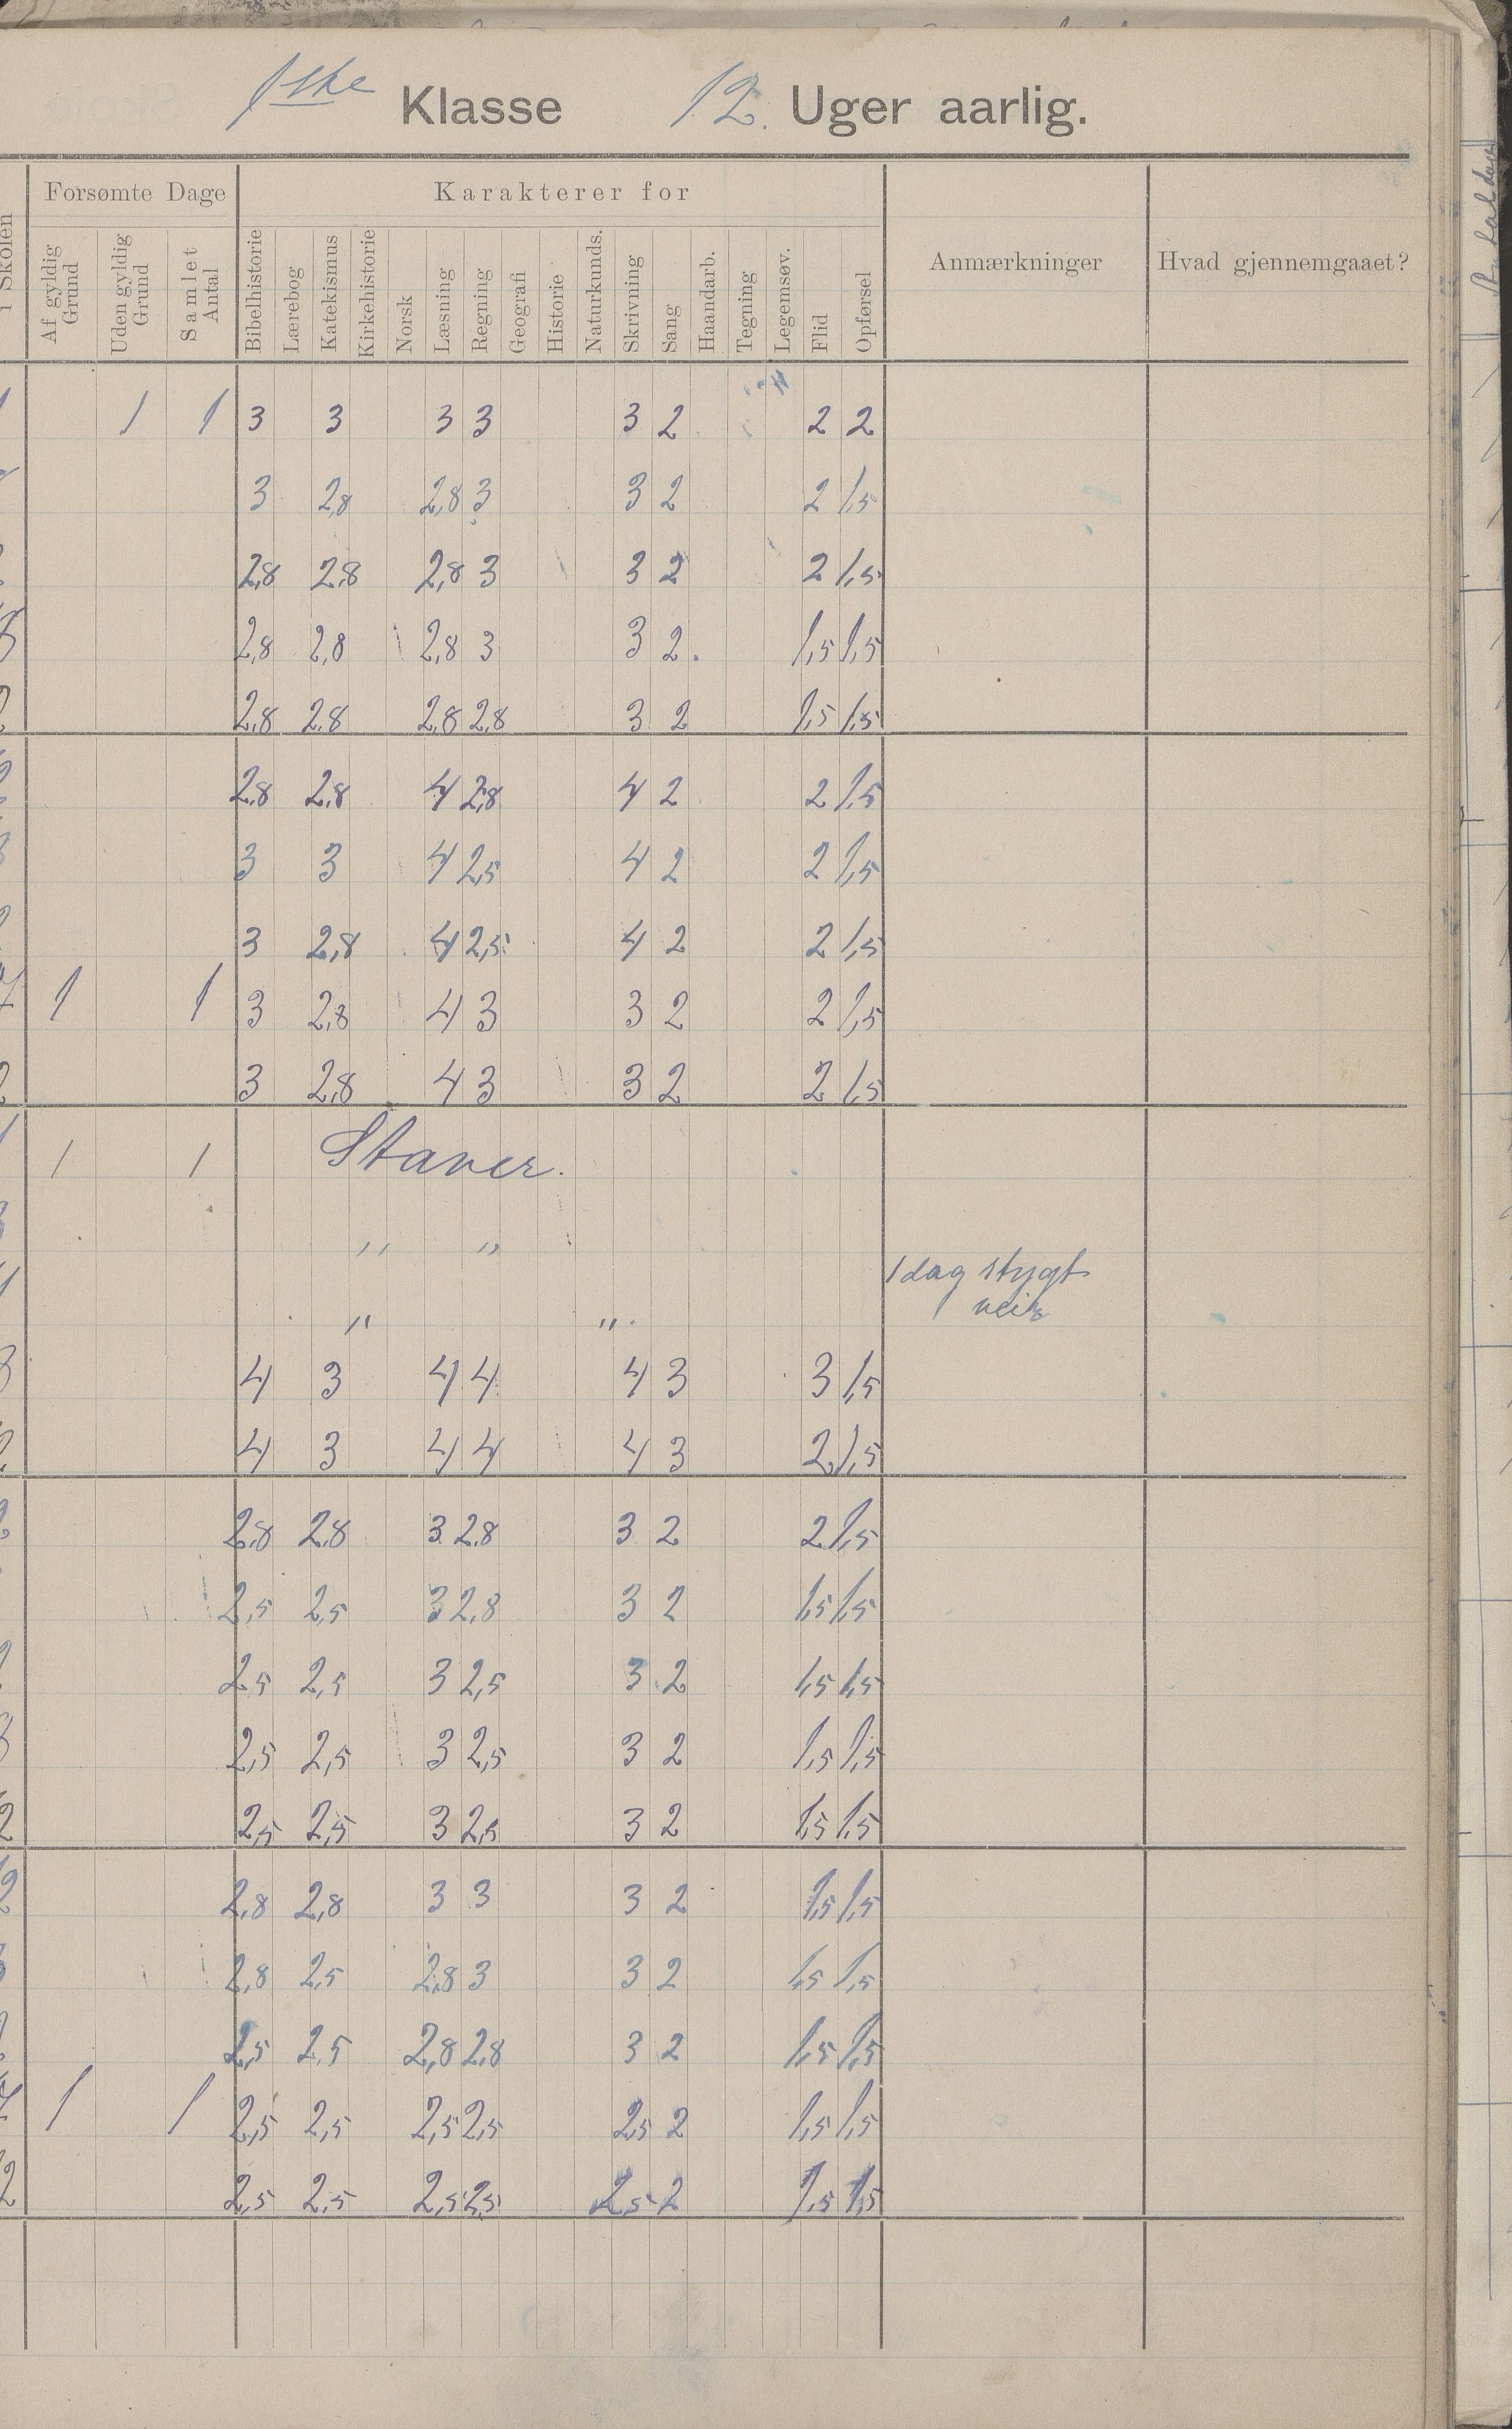 1ske Klasse 12. Uger aarlig.
i Skolen
Forsømte Dage
Karakterer for
Af gyldig Grund
Uden gyldig Grund
Samlet Antal
Bibelhistorie
Lærebog
Katekismus
Kirkehistorie
Norsk
Læsning
Regning
Geografi
Historie
Naturkunds.
Skrivning
Sang
Haandarb.
Tegning
Legemsøv.
Flid
Opførsel
Anmærkninger
Hvad gjennemgaaet?
1 1 3 3 3 3 3 2 2 2
3 2,8 2,8 3 3 2 2 1,5
2,8 2,8 2,8 3 3 2 2 1,5
2,8 2,8 2,8 3 3 2. 1,5 1,5
2,8 2,8 2,8 2,8 3 2 1,5 1,5
2,8 2,8 4 2,8 4 2 2 1,5
3 3 4 2,5 4 2 2 1,5
3 2,8 4 2,5 4 2 2 1,5
1 1 3 2,8 4 3 3 2 2 1,5
3 2,8 4 3 3 2 2 1,5
1 1 Staver.
" "
1 dag stygt
veir
" "
4 3 4 4 4 3 3 1,5
4 3 4 4 4 3 2 1,5
2,8 2,8 3 2,8 3 2 2 1,5
2,5 2,5 3 2,8 3 2 1,5 1,5
2,5 2,5 3 2,5 3 2 1,5 1,5
2,5 2,5 3 2,5 3 2 1,5 1,5
2,5 2,5 3 2,5 3 2 1,5 1,5
2,8 2,8 3 3 3 2 1,5 1,5
2,8 2,5 2,8 3 3 2 1,5 1,5
2,5 2,5 2,8 2,8 3 2 1,5 1,5
1 1 2,5 2,5 2,5 2,5 2,5 2 1,5 1,5
2,5 2,5 2,5 2,5 2,5 2 1,5 1,5